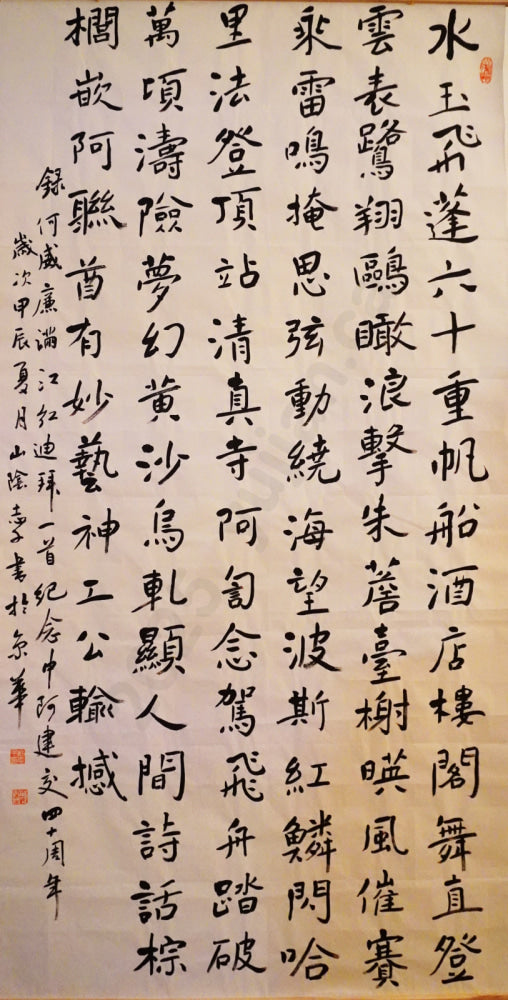 水玉飛蓬六十重帆船酒店樓閣舞直登
雲表鷺翔鷗瞰浪擊朱臺榭暎風催賽
乘雷鳴掩思弦動繞海望波斯紅鱗閃哈
里法登頂站清真寺阿訇念駕飛舟踏破
萬頃濤險夢幻黄沙烏軋顯人間詩話棕
櫚嵌阿聯酋有妙藝神工公輸撼
錄何威廉滿江紅迪拜一首紀念中阿建交四十周年
歲次甲辰夏月山陰書於京華